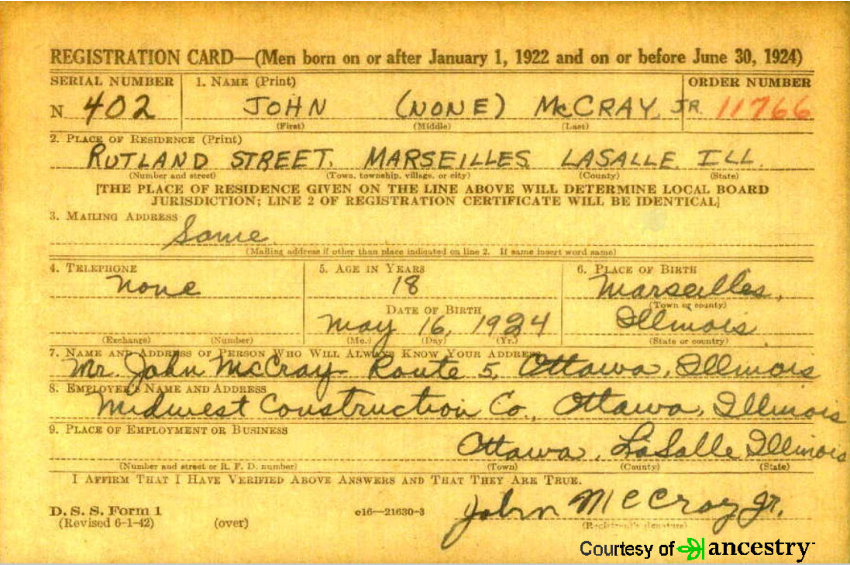 REGISTRATION CARD—(Men born on or after January 1, 1922 and on or before June 30, 1924)
SERIAL NUMBER 1. NAME (Print) ORDER NUMBER
N 402 JOHN (NONE) McCRAY, JR. 11766
(First) (Middle) (Last)
2. PLACE OF RESIDENCE (Print)
RUTLAND STREET, MARSEILLES LASALLE ILL.
(Number and street) (Town, township, village, or city) (County) (State)
[THE PLACE OF RESIDENCE GIVEN ON THE LINE ABOVE WILL DETERMINE LOCAL BOARD
JURISDICTION; LINE 2 OF REGISTRATION CERTIFICATE WILL BE IDENTICAL]
3. MAILING ADDRESS
Same
(Mailing address if other than place indicated on line 2. If same insert word same)
4. TELEPHONE 5. AGE IN YEARS 6. PLACE OF BIRTH
None 18 Marseilles,
DATE OF BIRTH (Town or county)
May 16, 1924 Illinois
(Exchange) (Number) (Mo.) (Day) (Yr.) (State or country)
7. NAME AND ADDRESS OF PERSON WHO WILL ALWAYS KNOW YOUR ADDRESS
Mr. John McCray Route 5, Ottawa, Illinois
8. EMPLOYER'S NAME AND ADDRESS
Midwest Construction Co., Ottawa, Illinois
9. PLACE OF EMPLOYMENT OR BUSINESS
Ottawa, LaSalle Illinois
(Number and street or R. F. D. number) (Town) (County) (State)
I AFFIRM THAT I HAVE VERIFIED ABOVE ANSWERS AND THAT THEY ARE TRUE.
D. S. S. Form 1
(Revised 6-1-42) (over) c16—21630-3 John McCray Jr.
(Registrant's signature)
Courtesy of ancestry